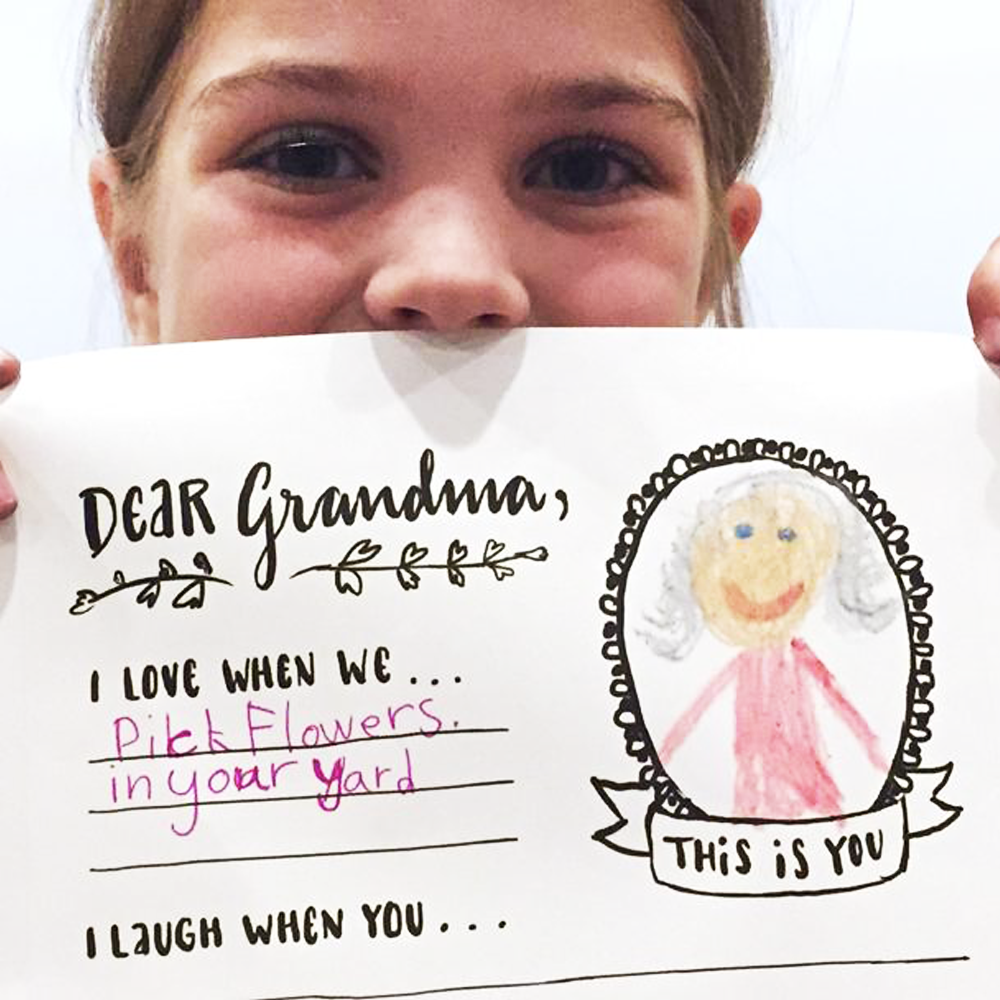 DEAR Grandma,
I LOVE WHEN WE...
Pick Flowers.
in your yard
I LAUGH WHEN YOU...
THiS iS YOU